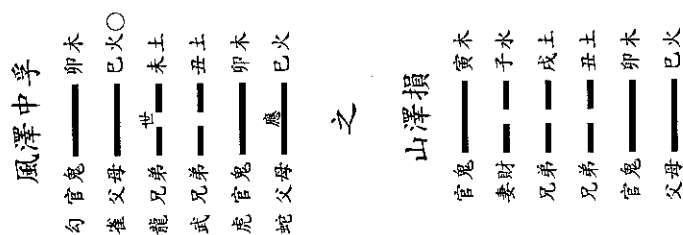 風澤中孚
勾 官鬼 卯木
雀 父母 巳火○
龍 兄弟 世 未土
武 兄弟 丑土
虎 官鬼 卯木
蛇 父母 應 巳火
之
山澤損
官鬼 寅木
妻財 子水
兄弟 戌土
兄弟 丑土
官鬼 卯木
父母 巳火